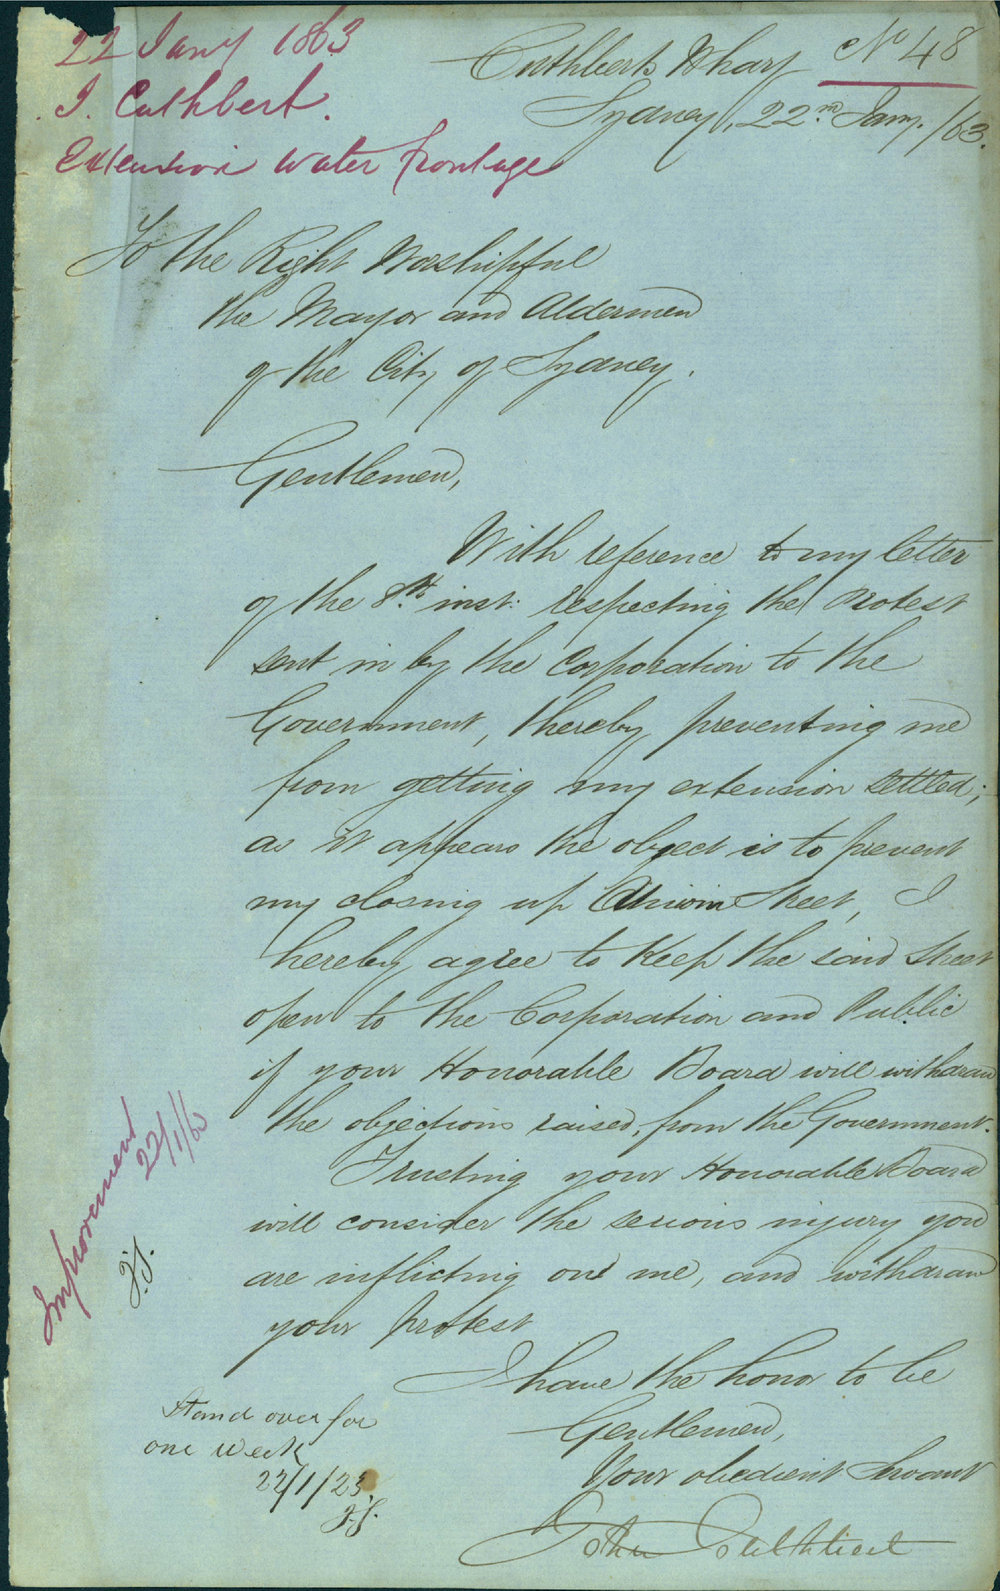 22 Jany 1863
J. Cuthbert.
Extension water frontage
No 48
Cuthberts Wharf
Sydney, 22nd Jany. /63.
To the Right Worshipful
the Mayor and Aldermen
of the City of Sydney.
Gentlemen,
With reference to my letter
of the 8th inst: respecting the Protest
sent in by the Corporation to the
Government, thereby preventing me
from getting my extension settled;
as it appears the object is to prevent
my closing up Union Street, I
hereby agree to keep the said Street
open to the Corporation and Public
if your Honorable Board will withdraw
the objections raised, from the Government.
Trusting your Honorable Board
will consider the serious injury you
are inflicting on me, and withdraw
your protest
I have the honor to be
Gentlemen,
Your obedient Servant
John Cuthbert
Improvement
22/1/63
Stand over for
one week
22/1/23.